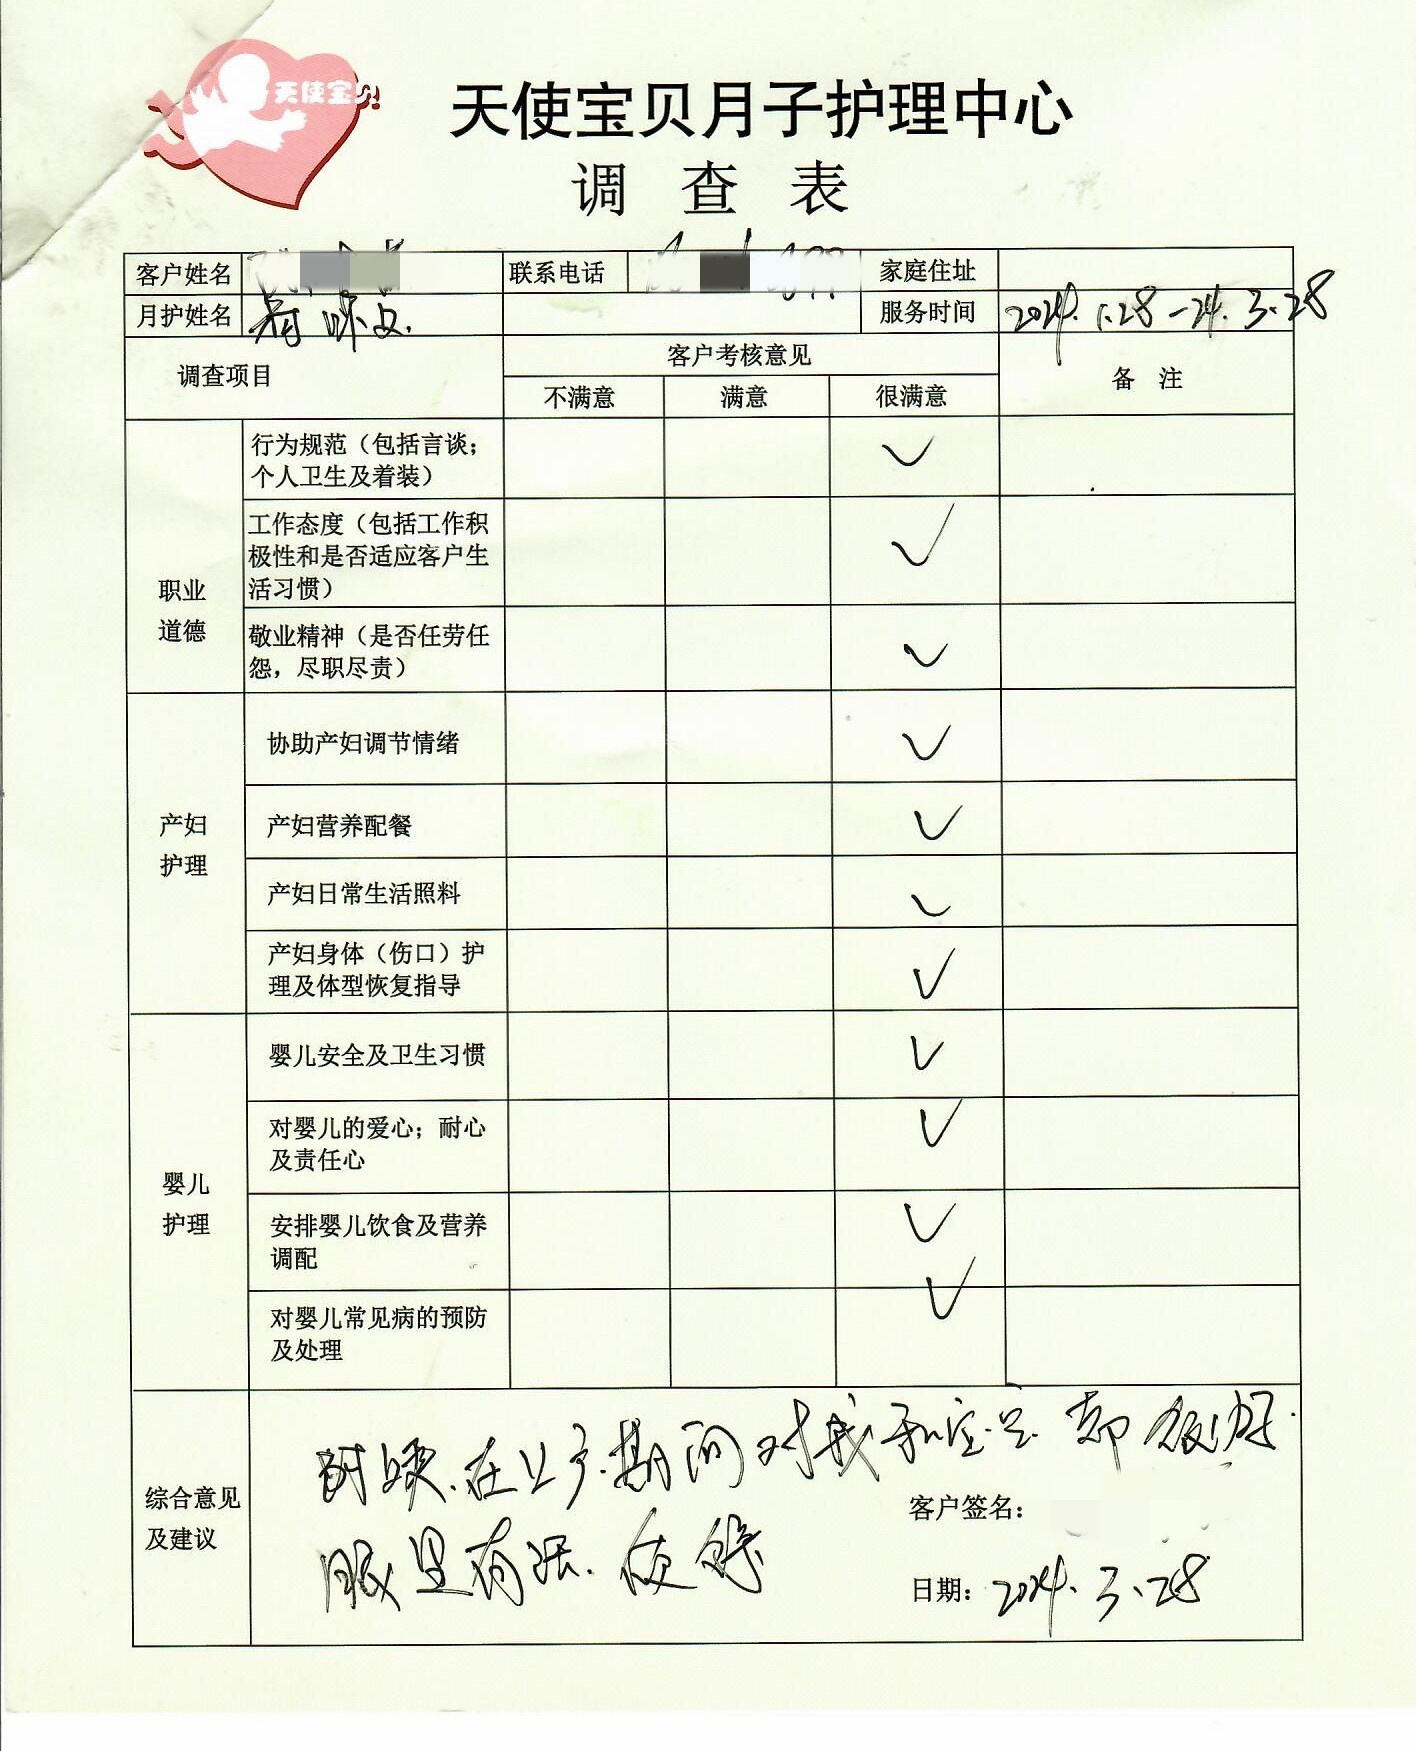 天使宝贝
天使宝贝月子护理中心
调 查 表
客户姓名 联系电话 家庭住址
月护姓名 服务时间 2024.1.28-24.3.28
调查项目 客户考核意见 备 注
不满意 满意 很满意
职业
道德
行为规范（包括言谈；
个人卫生及着装） ✓
工作态度（包括工作积
极性和是否适应客户生
活习惯） ✓
敬业精神（是否任劳任
怨，尽职尽责） ✓
产妇
护理
协助产妇调节情绪 ✓
产妇营养配餐 ✓
产妇日常生活照料 ✓
产妇身体（伤口）护
理及体型恢复指导 ✓
婴儿
护理
婴儿安全及卫生习惯 ✓
对婴儿的爱心；耐心
及责任心 ✓
安排婴儿饮食及营养
调配 ✓
对婴儿常见病的预防
及处理 ✓
综合意见
及建议
在 期间对我和宝宝都很好.
客户签名：
日期：2024.3.28